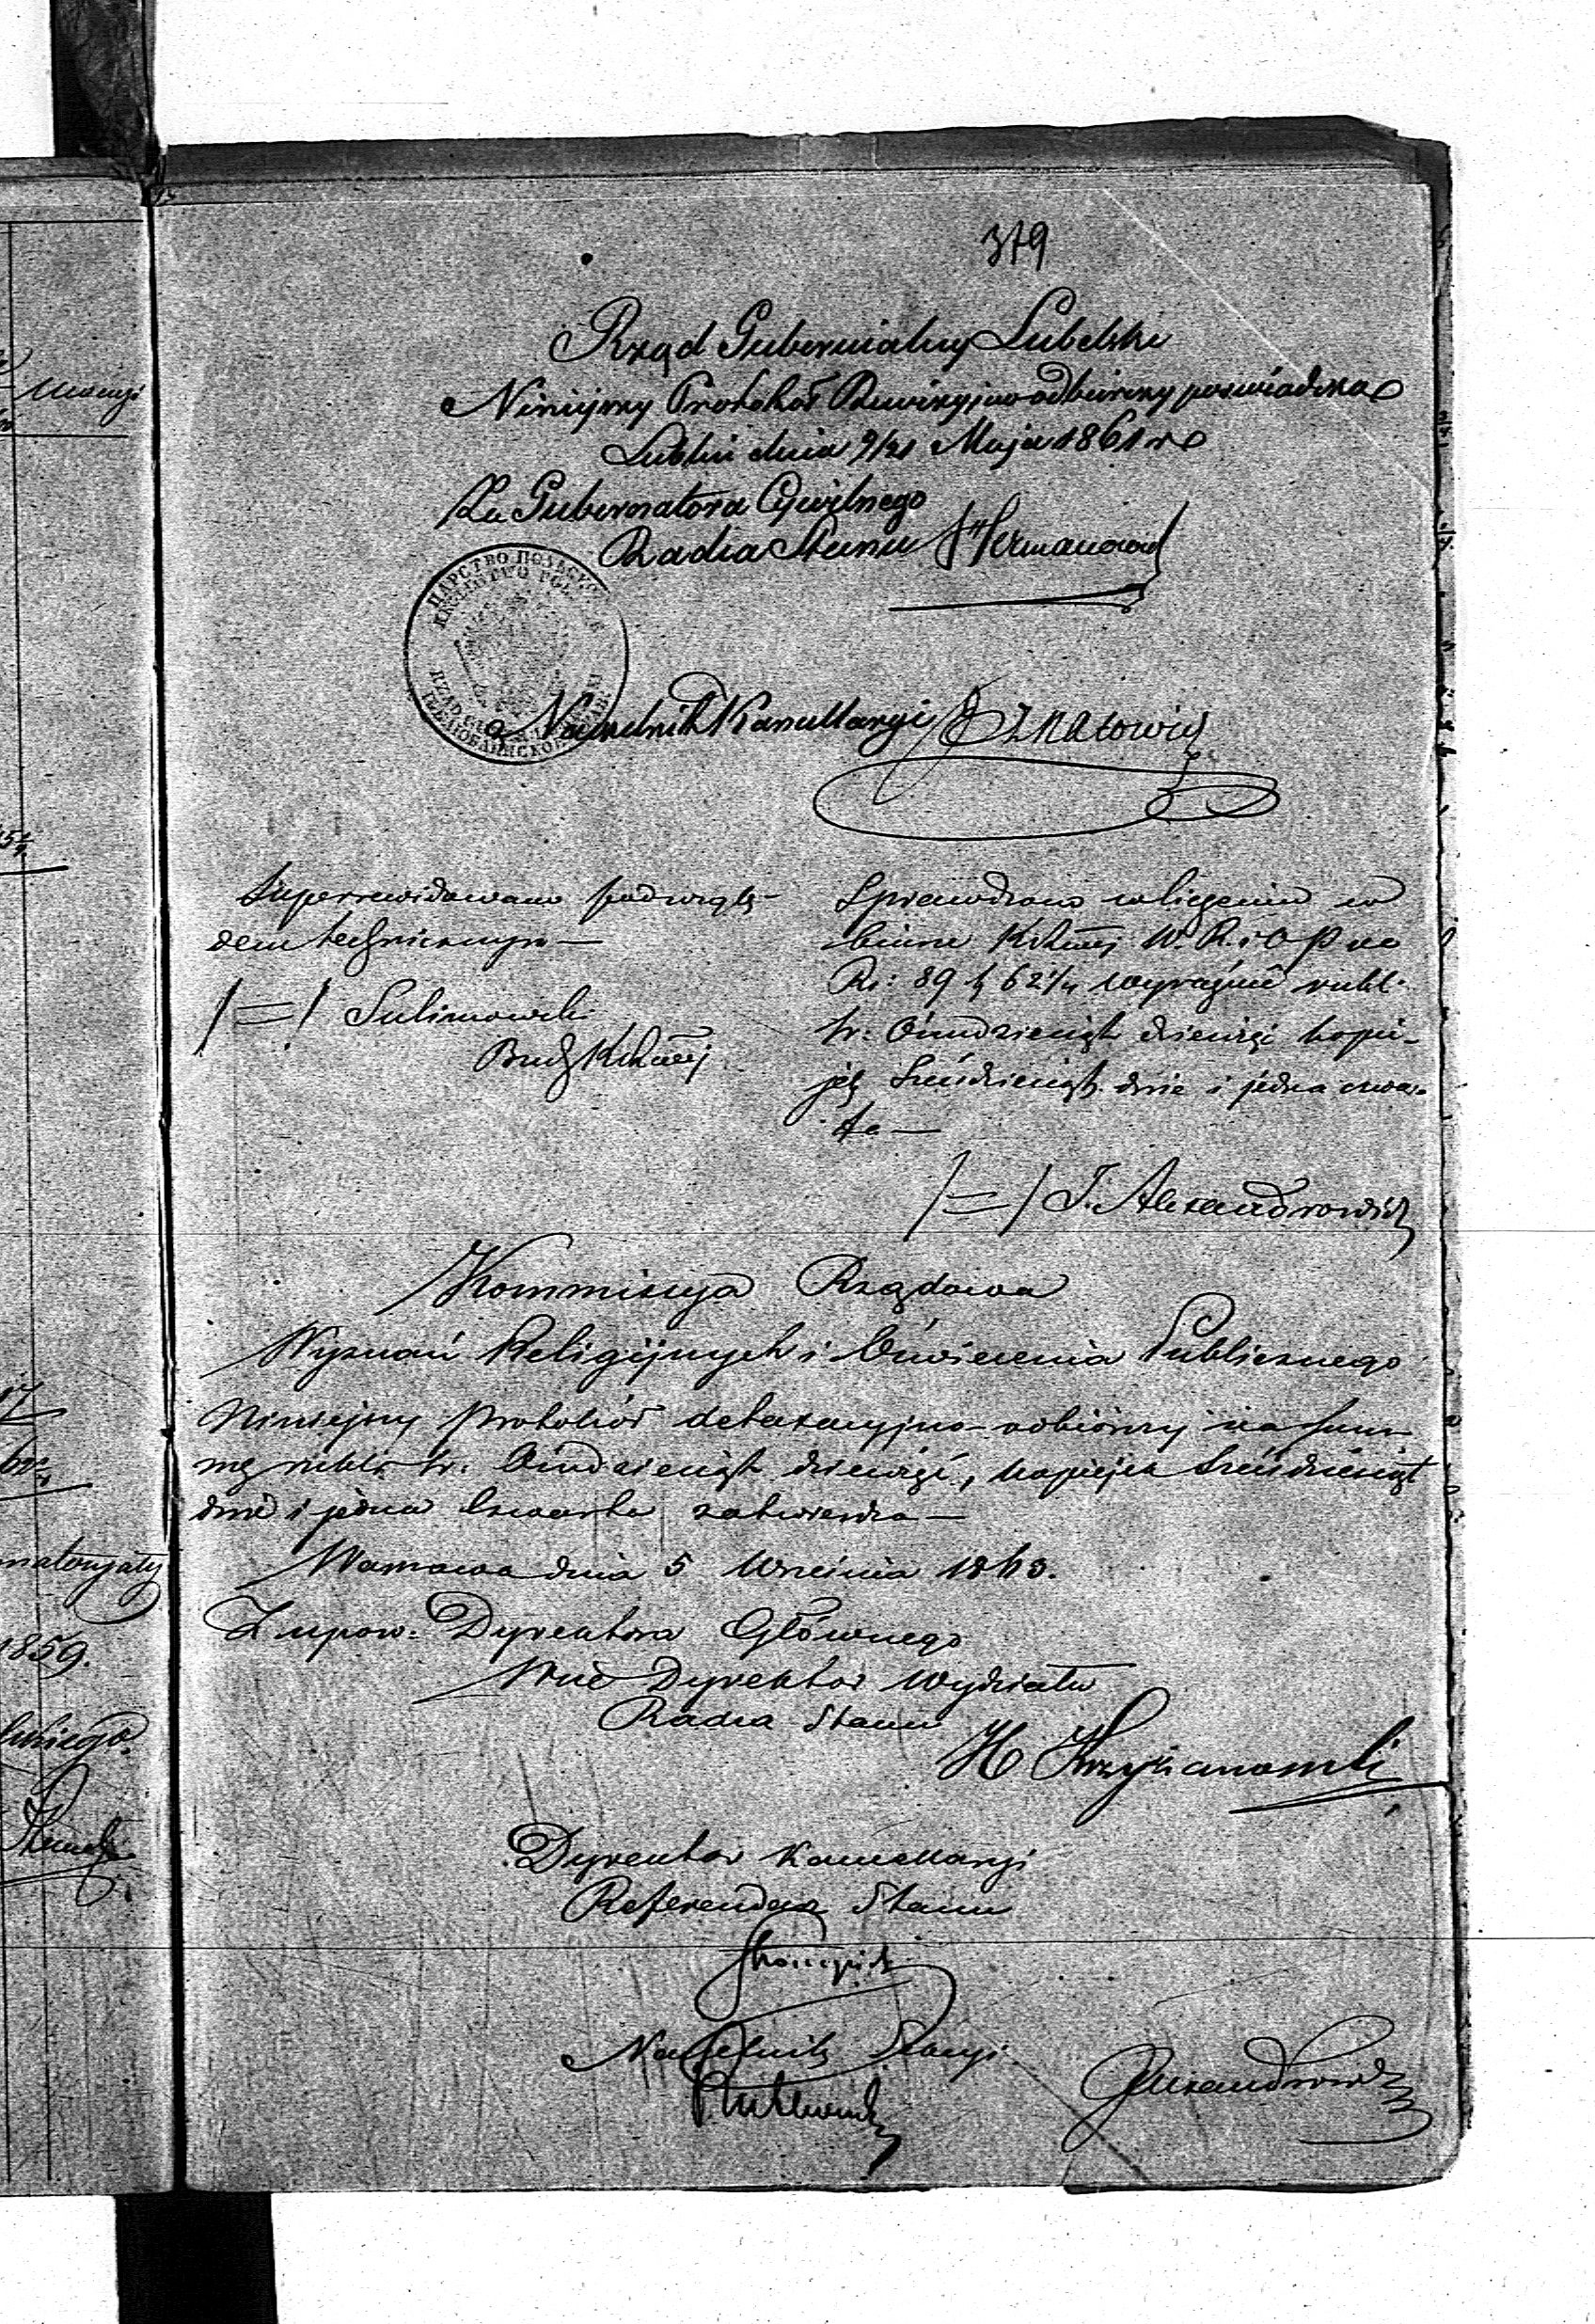 379
Rząd Gubernialny Lubelski
Niniejszy Protokół Rewizyjno-odbiorczy poswiadcza
Lublin dnia 9/21 Maja 1861 r
Za Gubernatora Cywilnego
Radca Stanu Hermanowsk
ЦАРСТВО ПОЛЬСКОЕ
Naczelnik Kancellaryi Ignatowicz
Superrewidowano pod wzglę-
dem technicznym —
/=/ Sulimowski
Bud. K
Sprawdzono w liczeniu w
biurze W. R. i O P na
Rs: 89 k 62 1/4 wyraźnie rubl.
sr: Ośmdziesiąt dziewięć kopie-
jek Sześdziesiąt dwie i jedna czwar-
ta —
/=/ J. Alexandrowicz
Kommissya Rządowa
Wyznań Religijnych i Oświecenia Publicznego
Niniejszy protokół detaxacyjno-odbiorczy na sum-
mę rubli sr. Ośmdziesiąt dziewięć, kopiejek Sześdziesiąt
dwie i jedna czwarta zatwierdza —
Warszawa dnia 5 Września 1863.
Z upow: Dyrektora Głównego
Wice Dyrektor Wydziału
Radca Stanu
H Krzyżanowski
Dyrektor Kancellaryi
Referendarz Stanu
Naczelnik Sekcyi
Alexandrowicz
Uwagi
materyały
1859.